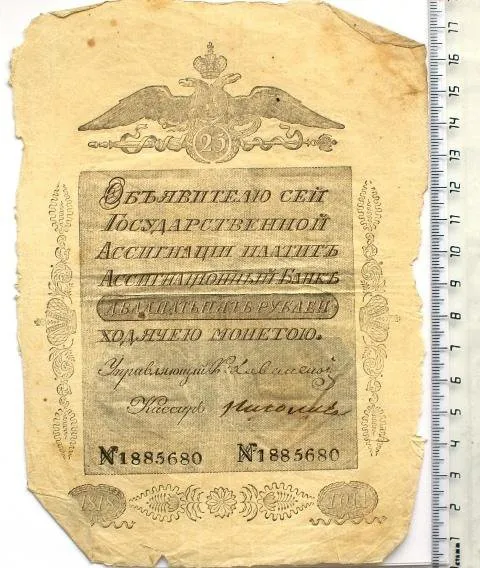 25
Объявителю сей
Государственной
Ассигнаціи платитъ
Ассигнаціонный Банкъ
двадцать пять рублей
ходячею монетою.
Управляющій
Кассиръ
№1885680 №1885680
17
16
15
14
13
12
11
10
9
8
7
6
5
4
3
2
1